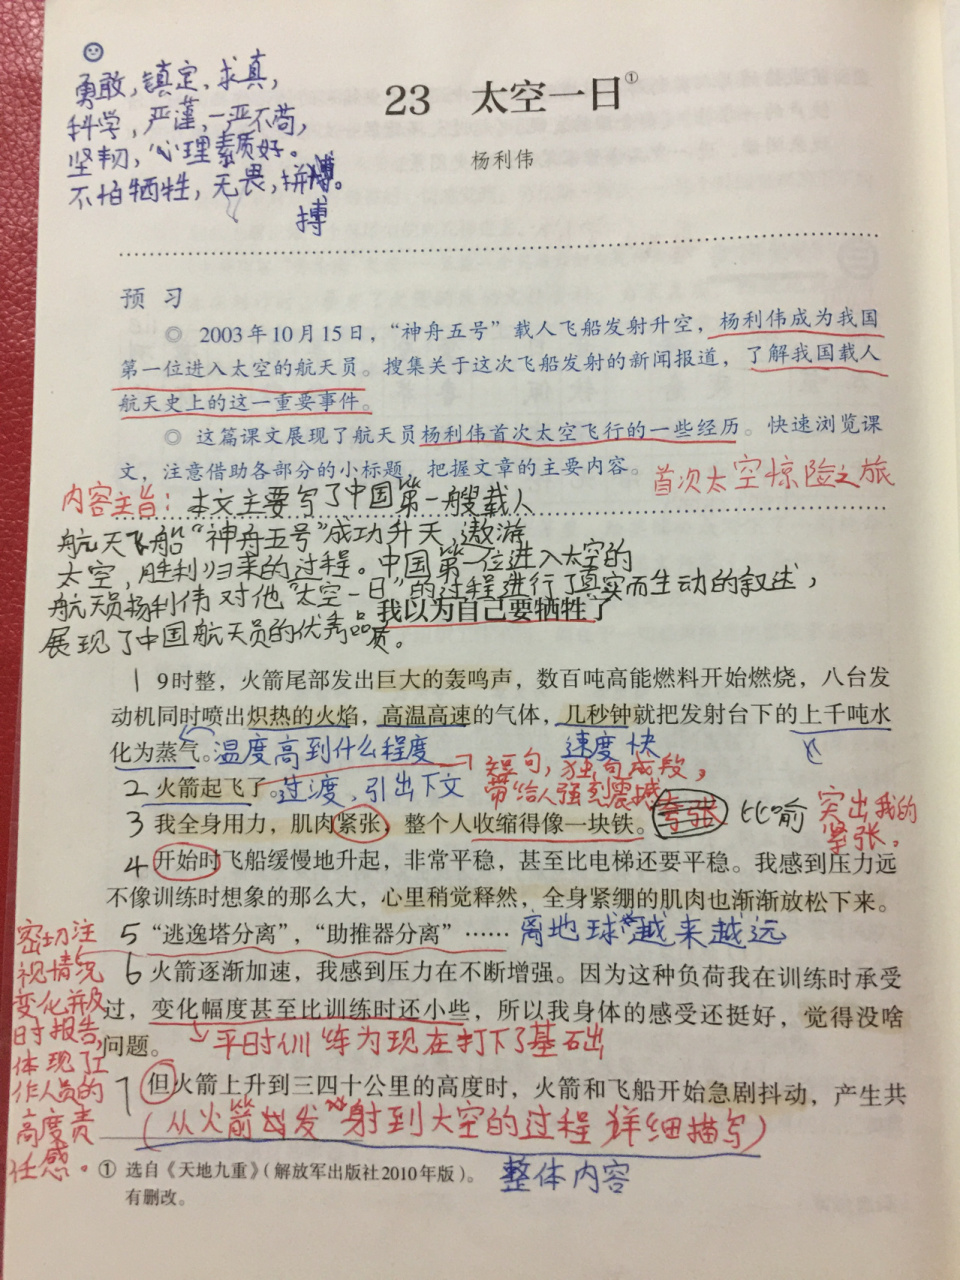 勇敢，镇定、求真，
科学，严谨，一严不苟，
坚韧，心理素质好。
不怕牺牲，无畏，拼搏。
搏
23 太空一日①
杨利伟
预 习
◎ 2003年10月15日，“神舟五号”载人飞船发射升空，杨利伟成为我国
第一位进入太空的航天员。搜集关于这次飞船发射的新闻报道，了解我国载人
航天史上的这一重要事件。
◎ 这篇课文展现了航天员杨利伟首次太空飞行的一些经历。快速浏览课
文，注意借助各部分的小标题，把握文章的主要内容。
首次太空惊险之旅
内容主旨：本文主要写了中国第一艘载人
航天飞船“神舟五号”成功升天，遨游
太空，胜利归来的过程。中国第一位进入太空的
航天员杨利伟对他“太空一日”的过程进行了真实而生动的叙述，
展现了中国航天员的优秀品质。
我以为自己要牺牲了
1 9时整，火箭尾部发出巨大的轰鸣声，数百吨高能燃料开始燃烧，八台发
动机同时喷出炽热的火焰，高温高速的气体，几秒钟就把发射台下的上千吨水
化为蒸气。温度高到什么程度 速度快
2 火箭起飞了。过渡、引出下文
短句，独句成段，
带给人强烈震撼
3 我全身用力，肌肉紧张，整个人收缩得像一块铁。夸张 比喻
突出我的
紧张。
4 开始时飞船缓慢地升起，非常平稳，甚至比电梯还要平稳。我感到压力远
不像训练时想象的那么大，心里稍觉释然，全身紧绷的肌肉也渐渐放松下来。
5 “逃逸塔分离”，“助推器分离”…… 离地球越来越远
密切注
视情况
变化并及
时报告，
体现了工
作人员的
高度责
任感。
6 火箭逐渐加速，我感到压力在不断增强。因为这种负荷我在训练时承受
过，变化幅度甚至比训练时还小些，所以我身体的感受还挺好，觉得没啥
问题。 平时训练为现在打下了基础出
7 但火箭上升到三四十公里的高度时，火箭和飞船开始急剧抖动，产生共
（从火箭发射到大空的过程 详细描写）
整体内容
① 选自《天地九重》（解放军出版社2010年版）。
有删改。